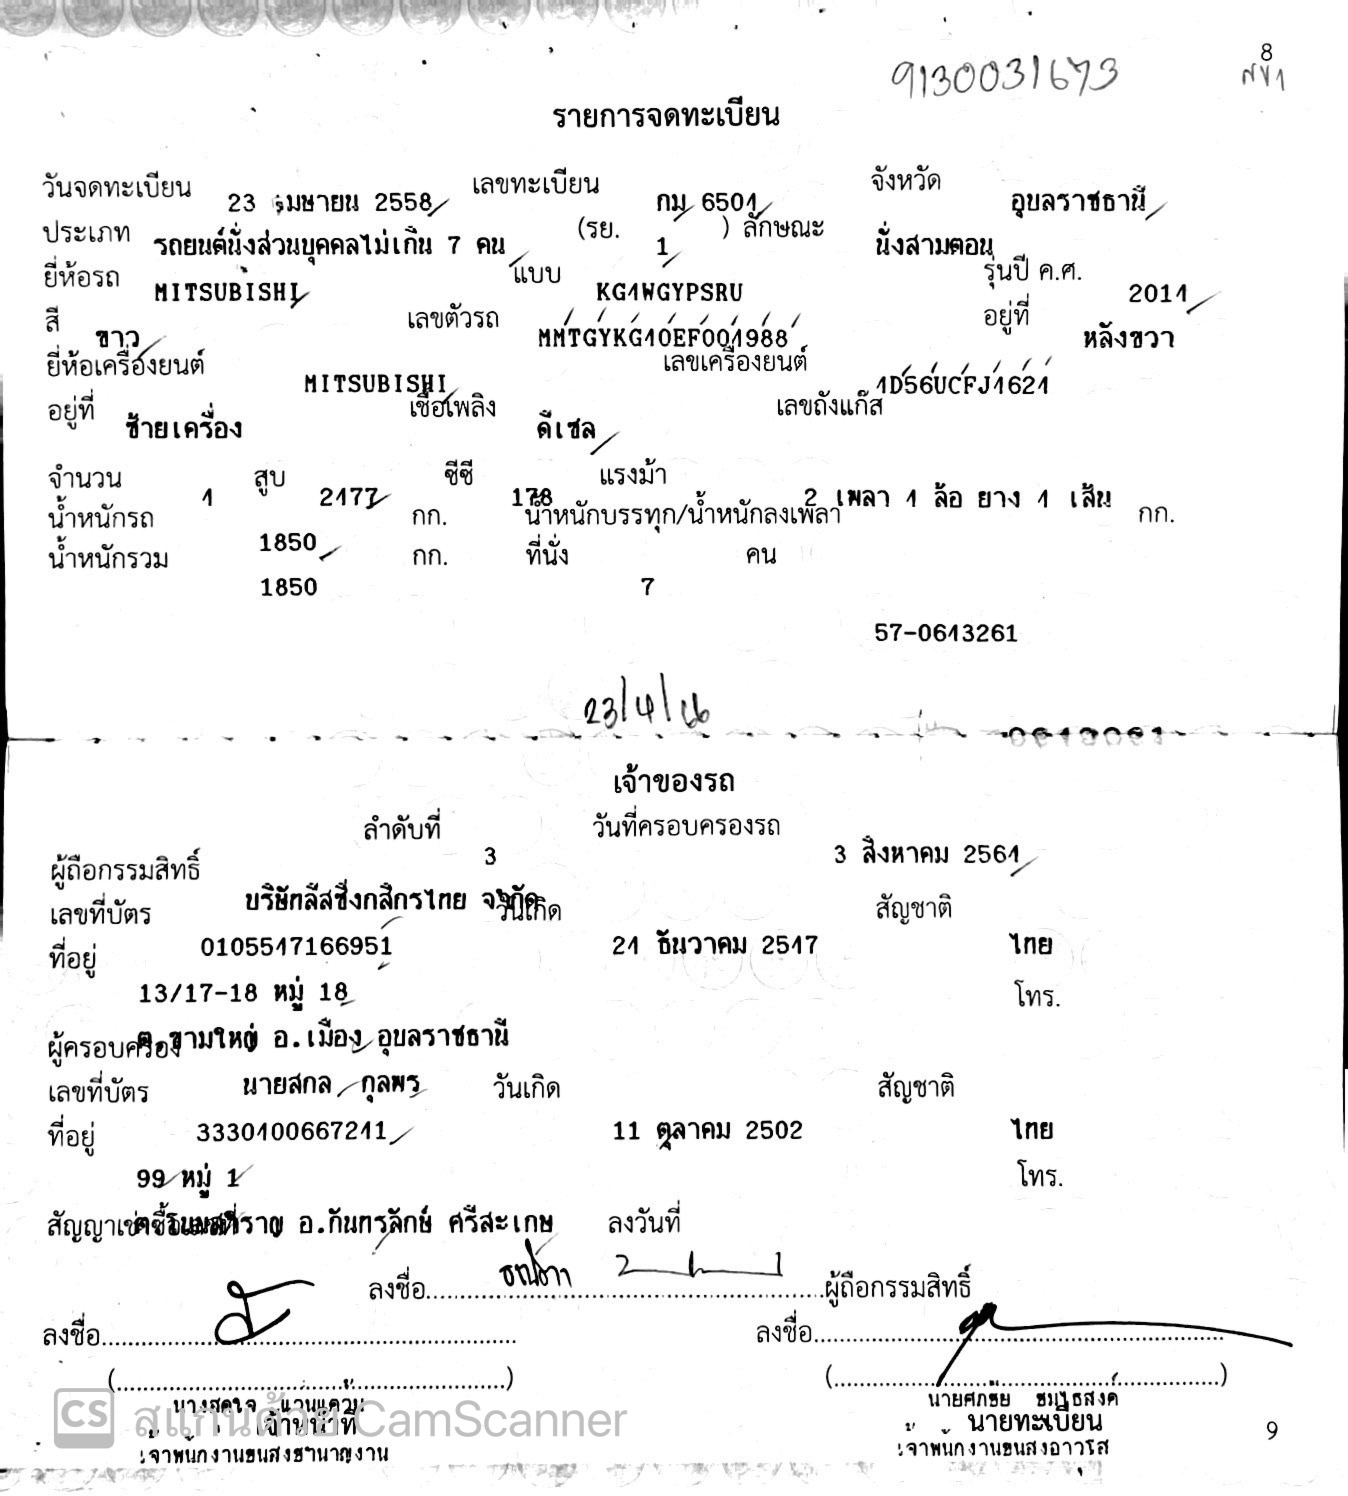 9130031673
8
รายการจดทะเบียน
วันจดทะเบียน 23 เมษายน 2558 เลขทะเบียน กม 6504 จังหวัด อุบลราชธานี
ประเภท รถยนต์นั่งส่วนบุคคลไม่เกิน 7 คน (รย. 1 ) ลักษณะ นั่งสามตอน
ยี่ห้อรถ MITSUBISHI แบบ KG4WGYPSRU รุ่นปี ค.ศ. 2014
สี ขาว เลขตัวรถ MMTGYKG40EF004988 อยู่ที่ หลังขวา
ยี่ห้อเครื่องยนต์ MITSUBISHI เลขเครื่องยนต์ 4D56UCFJ4624
อยู่ที่ ซ้ายเครื่อง เชื้อเพลิง ดีเซล เลขถังแก๊ส
จำนวน 4 สูบ 2477 ซีซี 178 แรงม้า 2 เพลา 4 ล้อ ยาง 4 เส้น
น้ำหนักรถ 1850 กก. น้ำหนักบรรทุก/น้ำหนักลงเพลา กก.
น้ำหนักรวม 1850 กก. ที่นั่ง 7 คน
57-0643261
23/4/66
เจ้าของรถ
ลำดับที่ 3 วันที่ครอบครองรถ 3 สิงหาคม 2564
ผู้ถือกรรมสิทธิ์ บริษัทลีสซิ่งกสิกรไทย จำกัด
เลขที่บัตร 0105547166951 วันเกิด 24 ธันวาคม 2547 สัญชาติ ไทย
ที่อยู่ 13/17-18 หมู่ 18 โทร.
ต.ขามใหญ่ อ.เมือง อุบลราชธานี
ผู้ครอบครอง นายสกล กุลพร
เลขที่บัตร 3330400667241 วันเกิด 11 ตุลาคม 2502 สัญชาติ ไทย
ที่อยู่ 99 หมู่ 1 โทร.
สัญญาเช่าซื้อเลขที่ อ.กันทรลักษ์ ศรีสะเกษ ลงวันที่
ลงชื่อ ผู้ถือกรรมสิทธิ์
ลงชื่อ ลงชื่อ
( ) ( )
เจ้าหน้าที่ นายทะเบียน
เจ้าพนักงานขนส่งชำนาญงาน เจ้าพนักงานขนส่งอาวุโส
CS สแกนด้วย CamScanner
9